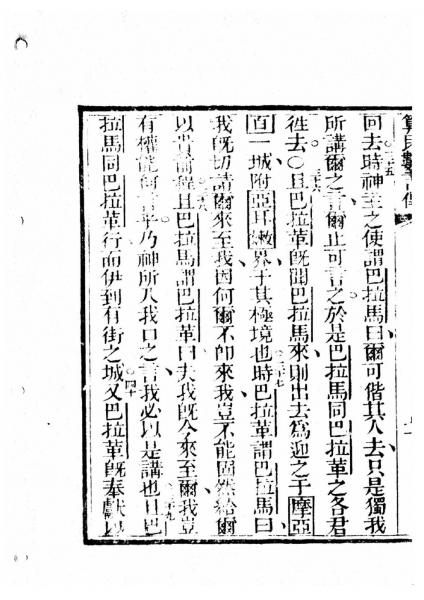 算民數書傳
同去時神主之使謂巴拉馬曰爾可偕其人去只是獨我
三五
所講爾之言爾止可言之於是巴拉馬同巴拉革之各君
三六
徃去○且巴拉革既聞巴拉馬來則出去為迎之于摩亞
百一城附亞耳嫩界于其極境也時巴拉革謂巴拉馬曰
三七
我既切請爾來至我因何爾不即來我豈不能固然給爾
三八
以貴爵祿且巴拉馬謂巴拉革曰夫我既今來至爾我豈
三九
有權能何言乎乃神所入我口之言我必以是講也且巴
四十
拉馬同巴拉革行而伊到有街之城又巴拉革既奉獻以